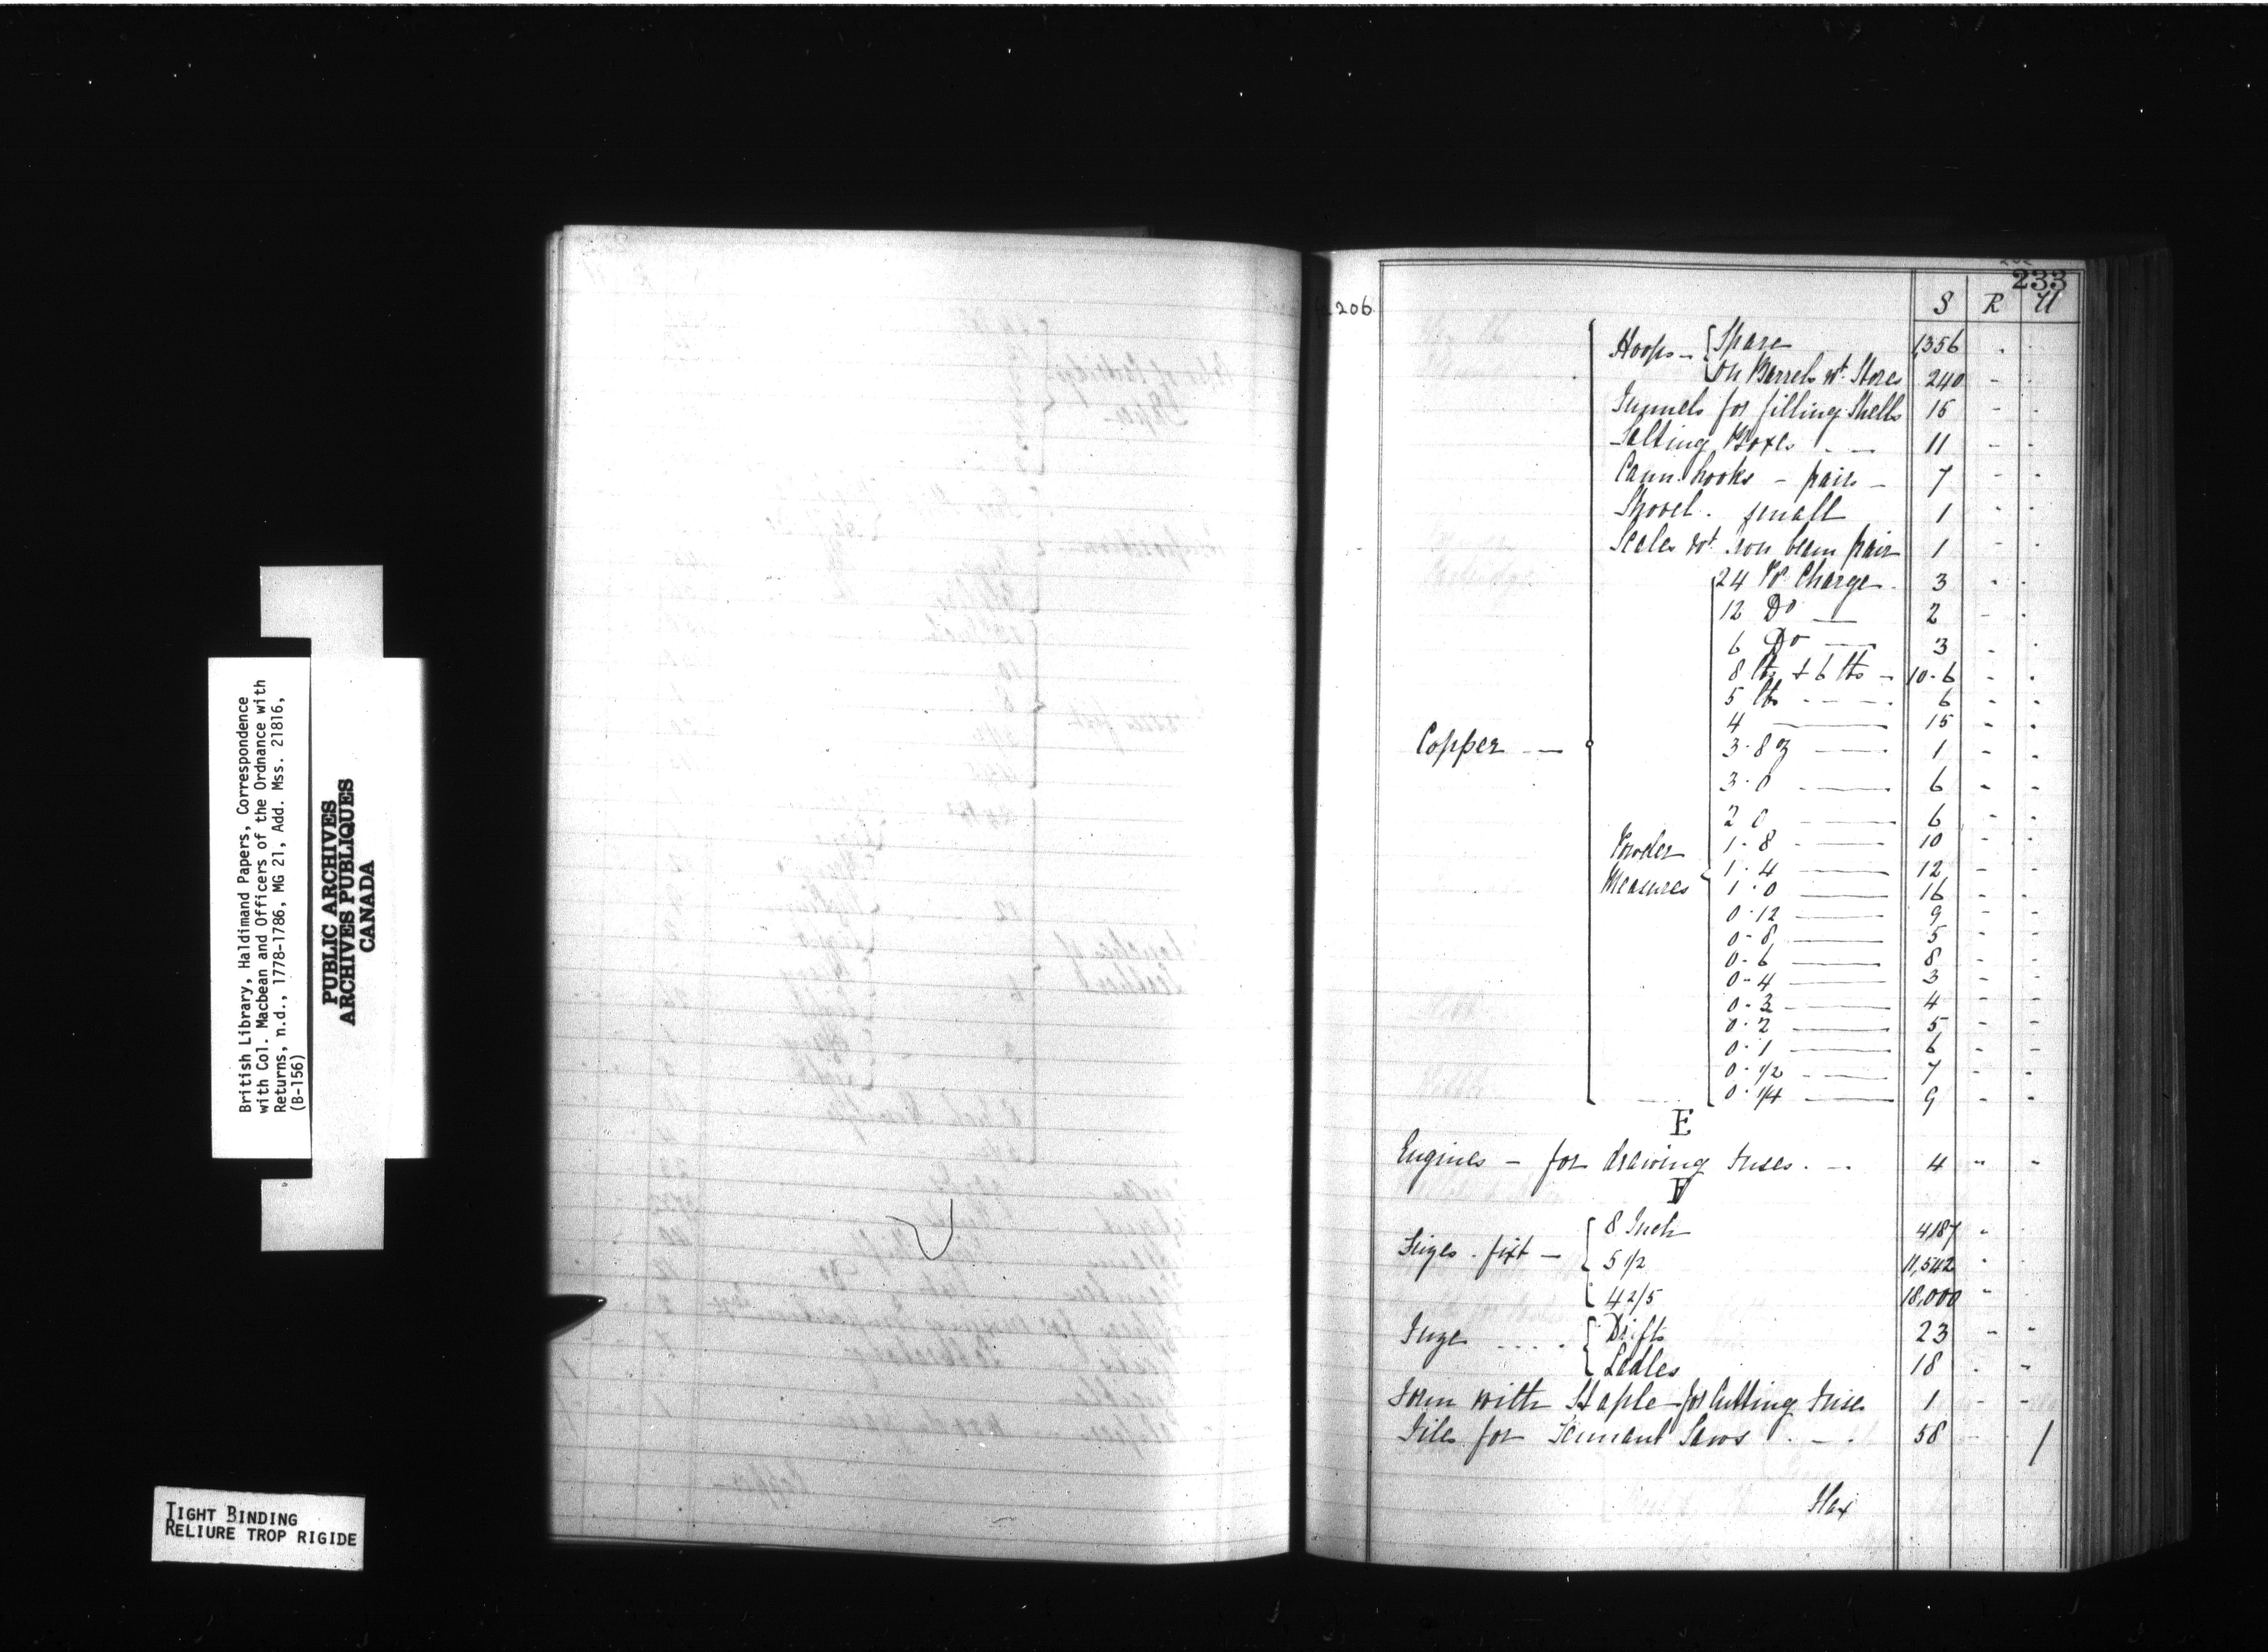 British Library, Haldimand Papers, Correspondence
with Col. Macbean and Officers of the Ordnance with
Returns, n.d., 1778-1786, MG 21, Add. Mss. 21816,
(B-156)
PUBLIC ARCHIVES
ARCHIVES PUBLIQUES
CANADA
TIGHT BINDING
RELIURE TROP RIGIDE
233
206 S R U
Hoops - Spare 1,356 - -
On Barrels wt. Stores 240 - -
Funnels for filling Shells 15 - -
Salting Boxes - - 11 - -
Cann hooks - pairs - 7 - -
Shovel . small 1 - -
Scales wt iron beam pair 1 - -
24 Pr Charge - 3 - -
12 Do — 2 - -
6 Do — 3 - -
8 lbs & 6 lbs - 10 - 6 - -
5 lbs - - - - 6 - -
4 — 15 - -
Copper — 3 . 8 oz — 1 - -
3 . 0 — 6 - -
2 0 — 6 - -
1 . 8 — 10 - -
Powder Measures 1 . 4 — 12 - -
1 . 0 — 16 - -
0 . 12 — 9 - -
0 - 8 — 5 - -
0 - 6 — 8 - -
0 - 4 — 3 - -
0 - 3 — 4 - -
0 . 2 — 5 - -
0 . 1 — 6 - -
0 . 1/2 — 7 - -
0 . 1/4 — 9 - -
E
Engines - for drawing Fuses . - 4 - -
F
Fuzes . fixt - 8 Inch 4,187 -
5 1/2 11,542 -
4 2/5 18,000 -
Fuze .... Drifts 23 - -
Ladles 18 . -
Form with Staple - for Cutting Fuse 1 - -
Files for Tennant Saws . - . 58 - 1
Flax